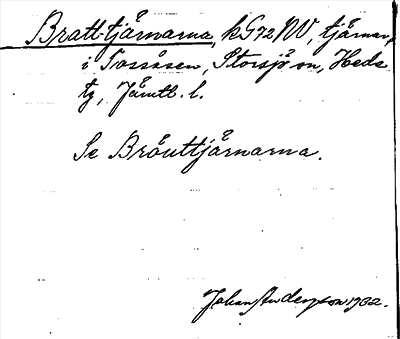 Bratt-tjärnarna, kG72NV, tjärnar,
i Tossåsen, Storsjö sn, Heds
tg, Jämtl. l.
Se Bröuttjärnarna.
Johan Anderson 1932.